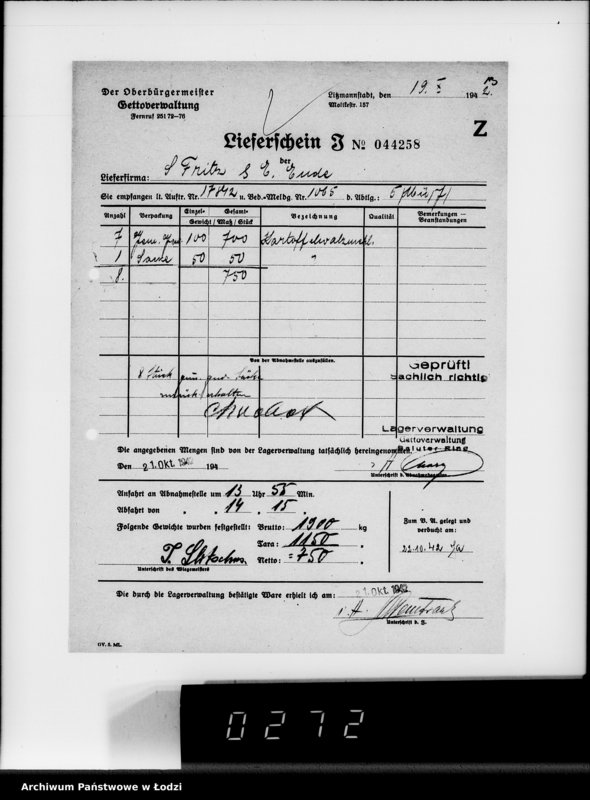 Der Oberbürgermeister
Gettoverwaltung
Fernruf 251 72—76
Litzmannstadt, den 19. X 1942.
Moltkestr. 157
Z
Lieferschein J № 044258
der
Lieferfirma: S Fritz & E. Ende
Sie empfangen lt. Auftr. Nr. 17842 u. Bed.-Meldg. Nr. 1065 d. Abtlg.:
Anzahl Verpackung Einzel- Gesamt- Bezeichnung Qualität Bemerkungen — Beanstandungen
Gewicht / Maß / Stück
7 100 700 Kartoffelwalzmehl.
1 Säcke 50 50 "
8. 750
Von der Abnahmestelle auszufüllen.
8 Stück
zurück erhalten
Geprüft!
sachlich richtig
Lagerverwaltung
Gettoverwaltung
Baluter Ring
Die angegebenen Mengen sind von der Lagerverwaltung tatsächlich hereingenommen.
Den 21. OKT. 1942 194
Unterschrift d. Abnahmebeamten
Anfahrt an Abnahmestelle um 13 Uhr 55 Min.
Abfahrt von " " 14 " 15 "
Folgende Gewichte wurden festgestellt: Brutto: 1900 kg
Tara: 1150 "
Netto: = 750 "
Unterschrift des Wiegemeisters
Zum B. A. gelegt und
verbucht am:
22.10.42
Die durch die Lagerverwaltung bestätigte Ware erhielt ich am: 21. OKT. 1942
i. A.
Unterschrift d. F.
GV. S. ML.
0272
Archiwum Państwowe w Łodzi